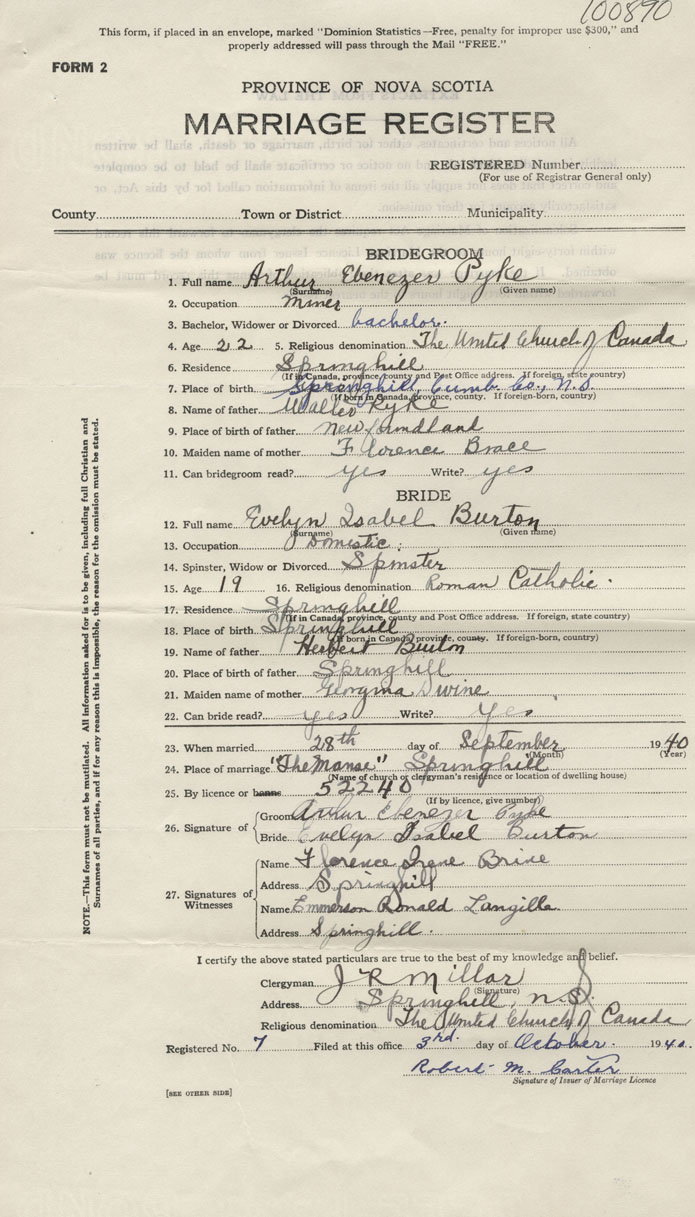 100890
This form, if placed in an envelope, marked "Dominion Statistics—Free, penalty for improper use $300," and
properly addressed will pass through the Mail "FREE."
FORM 2
PROVINCE OF NOVA SCOTIA
MARRIAGE REGISTER
REGISTERED Number
(For use of Registrar General only)
County Town or District Municipality
BRIDEGROOM
1. Full name Arthur Ebenezer Pyke
(Surname) (Given name)
2. Occupation Miner
3. Bachelor, Widower or Divorced bachelor.
4. Age 22 5. Religious denomination The United Church of Canada
6. Residence Springhill
(If in Canada, province, county and Post Office address. If foreign, state country)
7. Place of birth Springhill, Cumb. Co., N.S.
(If born in Canada, province, county. If foreign-born, country)
8. Name of father Walter Pyke
9. Place of birth of father Newfoundland
10. Maiden name of mother Florence Brace
11. Can bridegroom read? yes Write? yes
BRIDE
12. Full name Evelyn Isabel Burton
(Surname) (Given name)
13. Occupation Domestic.
14. Spinster, Widow or Divorced Spinster
15. Age 19 16. Religious denomination Roman Catholic.
17. Residence Springhill
(If in Canada, province, county and Post Office address. If foreign, state country)
18. Place of birth Springhill
(If born in Canada, province, county. If foreign-born, country)
19. Name of father Herbert Burton
20. Place of father Springhill
21. Maiden name of mother Georgina
22. Can bride read? yes Write? Yes
23. When married 28th day of September 1940
(Month) (Year)
24. Place of marriage "The Manse" Springhill
(Name of church or clergyman's residence or location of dwelling house)
25. By licence or banns 52240
(If by licence, give number)
26. Signature of Groom Arthur Ebenezer Pyke
Bride Evelyn Isabel Burton
27. Signatures of Witnesses
Name Florence Irene Brine
Address Springhill
Name Emmerson Ronald Langille
Address Springhill.
I certify the above stated particulars are true to the best of my knowledge and belief.
Clergyman J R Millar
(Signature)
Address Springhill, N.S.
Religious denomination The United Church of Canada
Registered No. 7 Filed at this office 3rd. day of October 1940.
Robert M. Carter
Signature of Issuer of Marriage Licence
[SEE OTHER SIDE]
NOTE.—This form must not be mutilated. All information asked for is to be given, including full Christian and
Surnames of all parties, and if for any reason this is impossible, the reason for the omission must be stated.